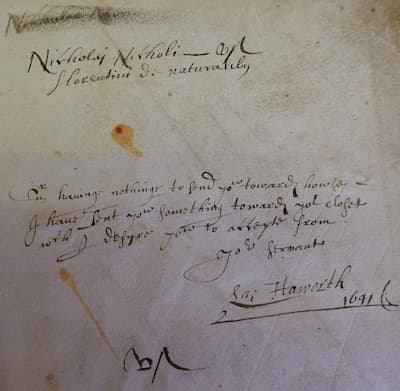 Nicholaj Nicholi
florentini de naturalibꝫ
Sr. havinge nothinge to send you towards
I have sent you something towards yor closet
wch I desyre you to accepte from
yor servant
Ja: Haworth
1641